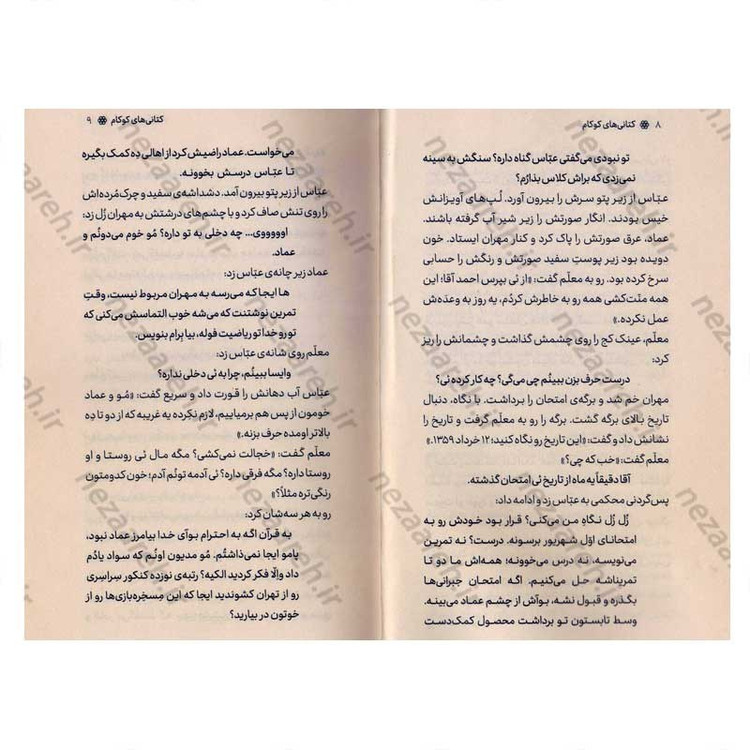 ۸ کتانی‌های کوکام
تو نبودی می‌گفتی عبّاس گناه داره؟ سنگش به سینه
نمی‌زدی که براش کلاس بذاژم؟
عبّاس از زیر پتو سرش را بیرون آورد. لُپ‌های آویزانش
خیس بودند. انگار صورتش را زیر شیر آب گرفته باشند.
عماد، عرق صورتش را پاک کرد و کنار مهران ایستاد. خون
دویده بود زیر پوستِ سفید صورتش و رنگش را حسابی
سرخ کرده بود. رو به معلّم گفت: «از ئی بپرس احمد آقا؛ این
همه منّت‌کشی همه رو به خاطرش کردُم، یه روز به وعده‌ش
عمل نکرده.»
معلّم، عینک کج را روی چشمش گذاشت و چشمانش را ریز
کرد:
درست حرف بزن ببینُم چی می‌گی؟ چه کار کرده ئی؟
مهران خم شد و برگه‌ی امتحان را برداشت. با نگاه، دنبال
تاریخ بالای برگه گشت. برگه را رو به معلّم گرفت و تاریخ را
نشانش داد و گفت: «این تاریخ رو نگاه کنید؛ ۱۲ خرداد ۱۳۵۹.»
معلّم گفت: «خب که چی؟»
آقا دقیقاً یه ماه از تاریخ ئی امتحان گذشته.
پس‌گردنی محکمی به عبّاس زد و ادامه داد:
زُل زُل نگاهِ من می‌کنی؟ قرار بود خودش رو به
امتحانای اوّل شهریور برسونه. درست؟ نه تمرین
می‌نویسه، نه درس می‌خوونه؛ همه‌اش ما دو تا
تمریناشه حل می‌کنیم. اگه امتحان جبرانی‌ها
بگذره و قبول نشه، بوآش از چشم عماد می‌بینه.
وسط تابستون تو برداشت محصول کمک‌دست
کتانی‌های کوکام ۹
می‌خواست. عماد راضیش کرد از اهالی دِه کمک بگیره
تا عبّاس درسش بخوونه.
عبّاس از زیر پتو بیرون آمد. دشداشه‌ی سفید و چرک‌مُرده‌اش
را روی تنش صاف کرد و با چشم‌های درشتش به مهران زُل زد:
اووووی... چه دخلی به تو داره؟ مُو خوم می‌دونُم و
عماد.
عماد زیر چانه‌ی عبّاس زد:
ها ایجا که می‌رسه به مهران مربوط نیست، وقتِ
تمرین نوشتنت که می‌شه خوب التماسش می‌کنی که
تو رو خدا تو ریاضیت فوله، بیا بِرام بنویس.
معلّم روی شانه‌ی عبّاس زد:
وایسا ببینُم، چرا به ئی دخلی نداره؟
عبّاس آب دهانش را قورت داد و سریع گفت: «مُو و عماد
خومون از پس هم برمیاییم، لازم نکرده یه غریبه که از دو تا دِه
بالاتر اومده حرف بزنه.»
معلّم گفت: «خجالت نمی‌کشی؟ مگه مال ئی روستا و او
روستا داره؟ مگه فرقی داره؟ ئی آدمه تونُم آدم؛ خون کدومتون
رنگی‌تره مثلاً؟»
رو به هر سه‌شان کرد:
به قرآن اگه به احترام بوآی خدا بیامرز عماد نبود،
پامو ایجا نمی‌ذاشتُم. مُو مدیون اونُم که سواد یادُم
داد والّا فکر کردید الکیه؟ رتبه‌ی نوزده کنکور سراسری
رو از تهران کشوندید ایجا که این مسخره‌بازی‌ها رو از
خوتون در بیارید؟
nezaareh.ir